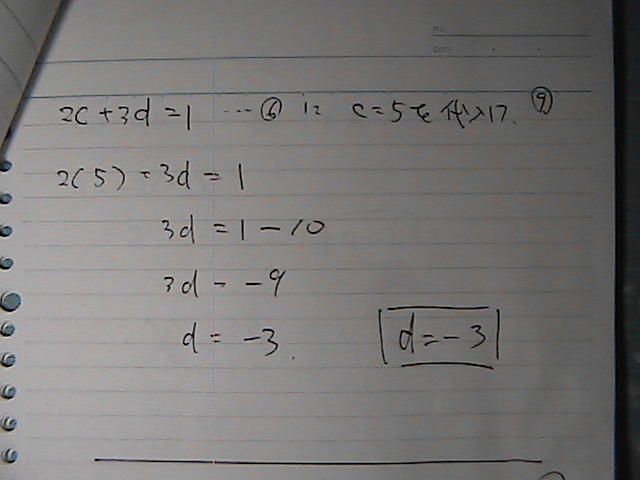 2c + 3d = 1 … ⑥ に c = 5 を代入して. ⑨
2(5) + 3d = 1
3d = 1 - 10
3d = -9
d = -3.
d = -3